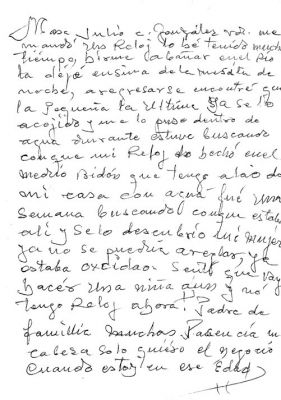 Mosa Julio C. González vd. me
mando Uns Reloj lo hé tenido mucho
tiempo, birme a bañar en el Rio
la dejé ensima de la mesita de
noche, a regresarse encontre que
la Pequeña la Ultima ya se lo
acojido y me lo puso dentro de
agua durante estuve buscando
conque mi Reloj lo hechó en el
medio Bidón que tengo alao de
mi casa con acua fué Una
Semana buscando conque estaba
alí y Selo descubrío mi mujer
ya no se puedía areglar, ya
estaba oxcidao. Sentí que vay
hacer Una niña aun y nó
tengo Reloj ahora! Padre de
famillia muchas Pasencia in
cabesa solo quiero el negocio
Cuando estoy en ese Edad